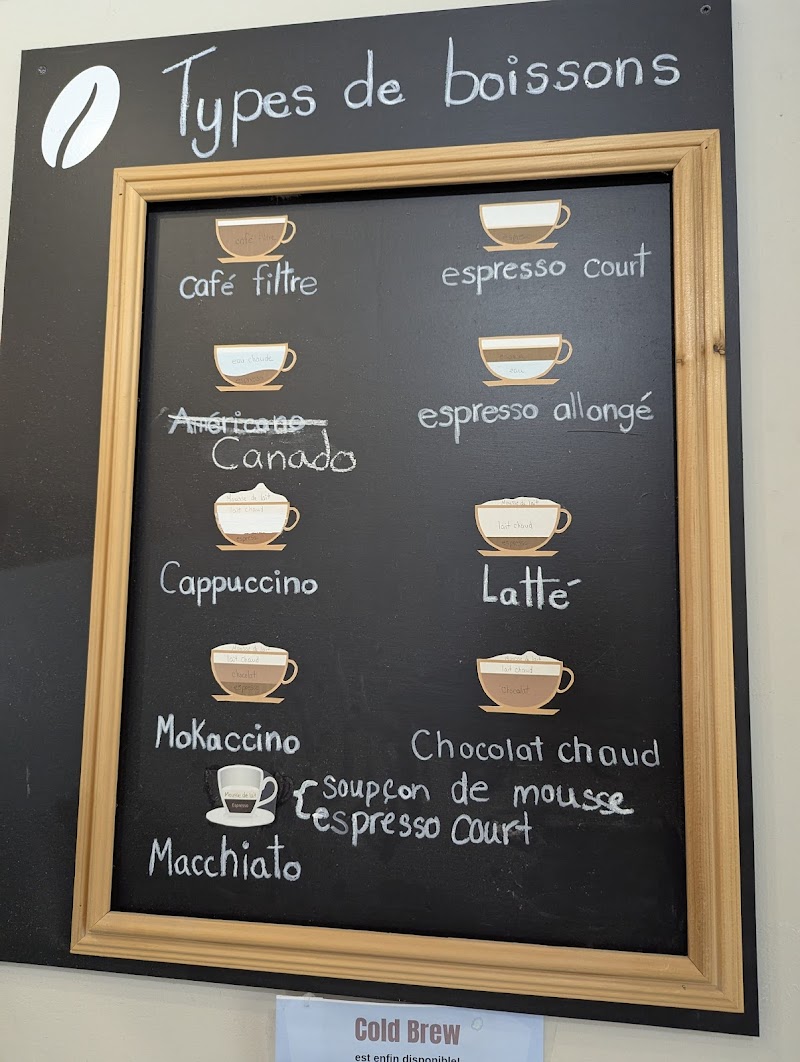 Types de boissons
café filtre
café filtre
espresso court
eau chaude
Américano
Canado
eau
espresso allongé
Mousse de lait
lait chaud
espresso
Cappuccino
Mousse de lait
lait chaud
espresso
Latté
Mousse de lait
lait chaud
chocolat
espresso
Mokaccino
Mousse de lait
lait chaud
Chocolat
Chocolat chaud
Mousse de lait
Espresso
soupçon de mousse
espresso court
Macchiato
Cold Brew
est enfin disponible!